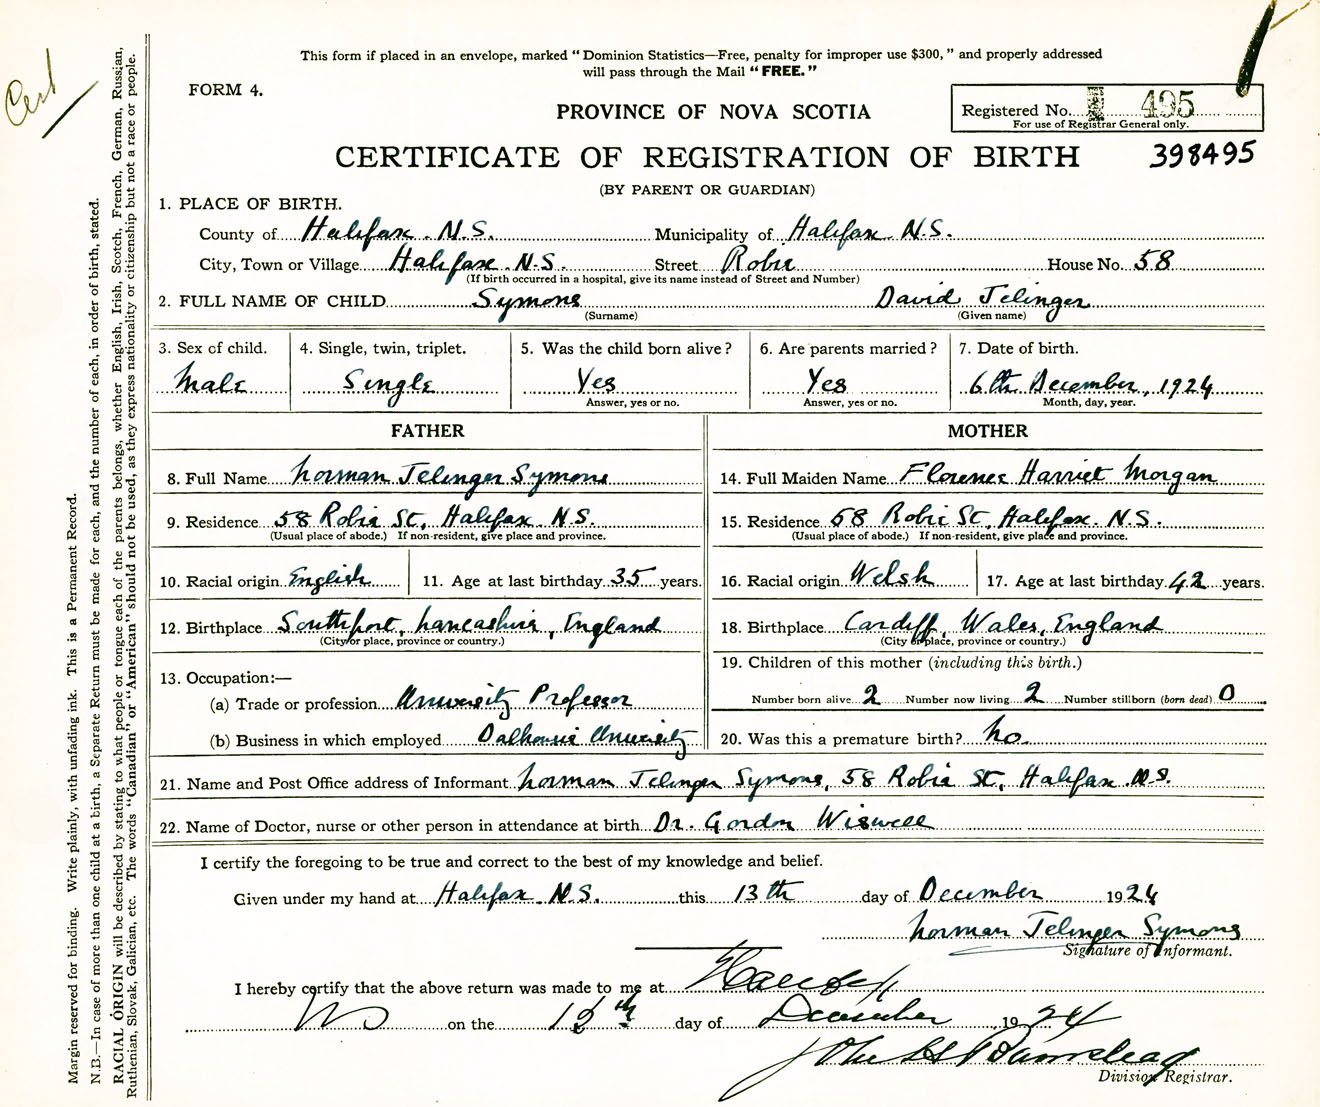 This form if placed in an envelope, marked “Dominion Statistics—Free, penalty for improper use $300,” and properly addressed
will pass through the Mail “FREE.”
Cert
FORM 4.
PROVINCE OF NOVA SCOTIA
Registered No. 495
For use of Registrar General only.
CERTIFICATE OF REGISTRATION OF BIRTH 398495
(BY PARENT OR GUARDIAN)
1. PLACE OF BIRTH.
County of Halifax. N.S. Municipality of Halifax N.S.
City, Town or Village Halifax. N.S. Street Robie House No. 58
(If birth occurred in a hospital, give its name instead of Street and Number)
2. FULL NAME OF CHILD Symons David Jelinger
(Surname) (Given name)
3. Sex of child. 4. Single, twin, triplet. 5. Was the child born alive? 6. Are parents married? 7. Date of birth.
Male Single Yes Yes 6th December, 1924
Answer, yes or no. Answer, yes or no. Month, day, year.
FATHER MOTHER
8. Full Name Norman Jelinger Symons 14. Full Maiden Name Florence Harriet Morgan
9. Residence 58 Robie St, Halifax. N.S. 15. Residence 58 Robie St, Halifax. N.S.
(Usual place of abode.) If non-resident, give place and province. (Usual place of abode.) If non-resident, give place and province.
10. Racial origin English 11. Age at last birthday 35 years. 16. Racial origin Welsh 17. Age at last birthday 42 years.
12. Birthplace Southport, Lancashire, England 18. Birthplace Cardiff, Wales, England
(City or place, province or country.) (City or place, province or country.)
13. Occupation:— 19. Children of this mother (including this birth.)
(a) Trade or profession University Professor Number born alive 2 Number now living 2 Number stillborn (born dead) 0
(b) Business in which employed Dalhousie University 20. Was this a premature birth? No.
21. Name and Post Office address of Informant Norman Jelinger Symons, 58 Robie St, Halifax N.S.
22. Name of Doctor, nurse or other person in attendance at birth Dr. Gordon Wiswell
I certify the foregoing to be true and correct to the best of my knowledge and belief.
Given under my hand at Halifax. N.S. this 13th day of December 1924
Norman Jelinger Symons
Signature of Informant.
I hereby certify that the above return was made to me at Halifax
NS on the day of December 1924
John
Division Registrar.
Margin reserved for binding. Write plainly, with unfading ink. This is a Permanent Record.
N.B.—In case of more than one child at a birth, a Separate Return must be made for each, and the number of each, in order of birth, stated.
RACIAL ORIGIN will be described by stating to what people or tongue each of the parents belongs, whether English, Irish, Scotch, French, German, Russian,
Ruthenian, Slovak, Galician, etc. The words “Canadian” or “American” should not be used, as they express nationality or citizenship but not a race or people.